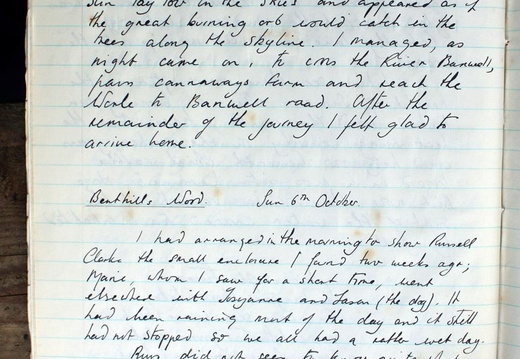 sun lay low in the skies and appeared as if
the great burning orb would catch in the
trees along the skyline. I managed, as
night came on, to cross the River Banwell,
pass cannaways farm and reach the
Worle to Banwell road. After the
remainder of the journey I felt glad to
arrive home.
Benthills Wood. Sun 6th October
I had arranged in the morning to show Russell
Clarke the small enclosure I found two weeks ago;
Marie, whom I saw for a short time, went
elsewhere with Tosyanne and Jason (the dog). It
had been raining most of the day and it still
had not stopped so we all had a rather wet day.
Russ did not seem to know